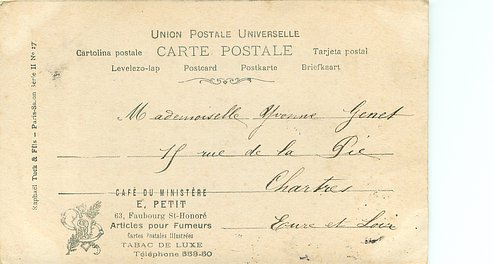 UNION POSTALE UNIVERSELLE
Cartolina postale CARTE POSTALE Tarjeta postal
Levelezo-lap Postcard Postkarte Briefkaart
Raphael Tuck & Fils — Paris-Salon Série II No 17
Mademoiselle Yvonne Genet
15 rue de la Pie
Chartres
Eure et Loir
CAFÉ DU MINISTÈRE
E. PETIT
63, Faubourg St-Honoré
Articles pour Fumeurs
Cartes Postales Illustrées
TABAC DE LUXE
Téléphone 568-60